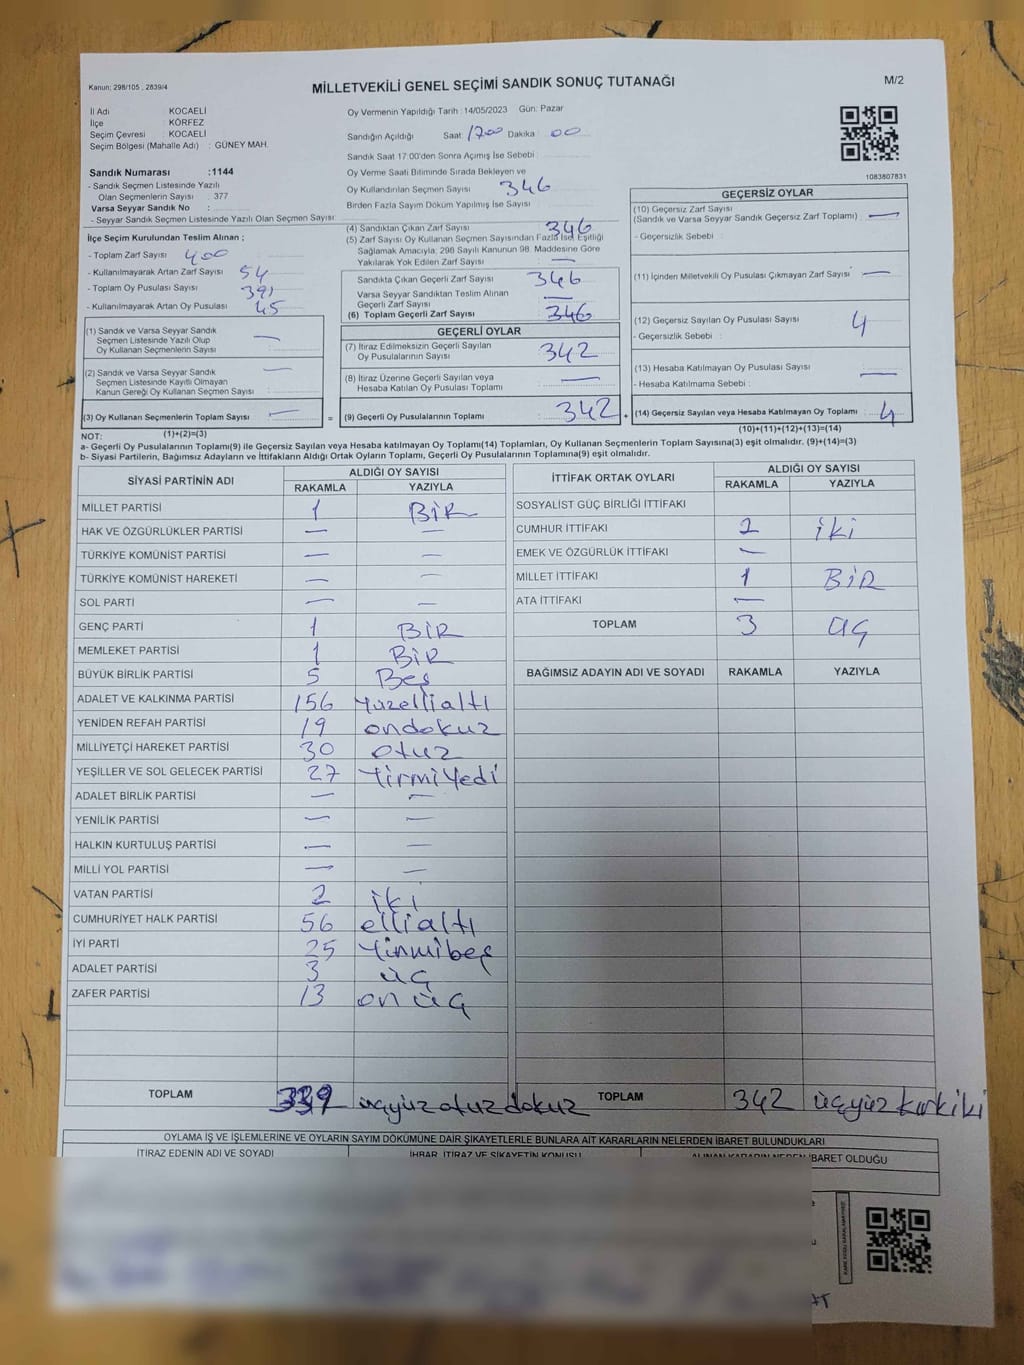 Kanun: 298/105 , 2839/4
MİLLETVEKİLİ GENEL SEÇİMİ SANDIK SONUÇ TUTANAĞI
M/2
İl Adı : KOCAELİ
İlçe : KÖRFEZ
Seçim Çevresi : KOCAELİ
Seçim Bölgesi (Mahalle Adı) : GÜNEY MAH.
Sandık Numarası :1144
- Sandık Seçmen Listesinde Yazılı
Olan Seçmenlerin Sayısı : 377
Varsa Seyyar Sandık No :
- Seyyar Sandık Seçmen Listesinde Yazılı Olan Seçmen Sayısı:
İlçe Seçim Kurulundan Teslim Alınan ;
- Toplam Zarf Sayısı : 400
- Kullanılmayarak Artan Zarf Sayısı : 54
- Toplam Oy Pusulası Sayısı : 391
- Kullanılmayarak Artan Oy Pusulası : 45
(1) Sandık ve Varsa Seyyar Sandık
Seçmen Listesinde Yazılı Olup
Oy Kullanan Seçmenlerin Sayısı : —
(2) Sandık ve Varsa Seyyar Sandık
Seçmen Listesinde Kayıtlı Olmayan
Kanun Gereği Oy Kullanan Seçmen Sayısı : —
(3) Oy Kullanan Seçmenlerin Toplam Sayısı : —
(1)+(2)=(3)
Oy Vermenin Yapıldığı Tarih : 14/05/2023 Gün: Pazar
Sandığın Açıldığı Saat : 1700 Dakika : 00
Sandık Saat 17:00'den Sonra Açımış İse Sebebi :
Oy Verme Saati Bitiminde Sırada Bekleyen ve
Oy Kullandırılan Seçmen Sayısı : 346
Birden Fazla Sayım Döküm Yapılmış İse Sayısı :
(4) Sandıktan Çıkan Zarf Sayısı : 346
(5) Zarf Sayısı Oy Kullanan Seçmen Sayısından Fazla İse( Eşitliği
Sağlamak Amacıyla, 298 Sayılı Kanunun 98. Maddesine Göre
Yakılarak Yok Edilen Zarf Sayısı : —
Sandıkta Çıkan Geçerli Zarf Sayısı : 346
Varsa Seyyar Sandıktan Teslim Alınan
Geçerli Zarf Sayısı : —
(6) Toplam Geçerli Zarf Sayısı : 346
GEÇERLİ OYLAR
(7) İtiraz Edilmeksizin Geçerli Sayılan
Oy Pusulalarının Sayısı : 342
(8) İtiraz Üzerine Geçerli Sayılan veya
Hesaba Katılan Oy Pusulası Toplamı : —
= (9) Geçerli Oy Pusulalarının Toplamı : 342 +
1083807831
GEÇERSİZ OYLAR
(10) Geçersiz Zarf Sayısı
(Sandık ve Varsa Seyyar Sandık Geçersiz Zarf Toplamı) : —
- Geçersizlik Sebebi :
(11) İçinden Milletvekili Oy Pusulası Çıkmayan Zarf Sayısı : —
(12) Geçersiz Sayılan Oy Pusulası Sayısı : 4
- Geçersizlik Sebebi :
(13) Hesaba Katılmayan Oy Pusulası Sayısı : —
- Hesaba Katılmama Sebebi :
(14) Geçersiz Sayılan veya Hesaba Katılmayan Oy Toplamı : 4
(10)+(11)+(12)+(13)=(14)
NOT:
a- Geçerli Oy Pusulalarının Toplamı(9) ile Geçersiz Sayılan veya Hesaba katılmayan Oy Toplamı(14) Toplamları, Oy Kullanan Seçmenlerin Toplam Sayısına(3) eşit olmalıdır. (9)+(14)=(3)
b- Siyasi Partilerin, Bağımsız Adayların ve İttifakların Aldığı Ortak Oyların Toplamı, Geçerli Oy Pusulalarının Toplamına(9) eşit olmalıdır.
SİYASİ PARTİNİN ADI ALDIĞI OY SAYISI
RAKAMLA YAZIYLA
MİLLET PARTİSİ 1 BİR
HAK VE ÖZGÜRLÜKLER PARTİSİ — —
TÜRKİYE KOMÜNİST PARTİSİ — —
TÜRKİYE KOMÜNİST HAREKETİ — —
SOL PARTİ — —
GENÇ PARTİ 1 BİR
MEMLEKET PARTİSİ 1 BİR
BÜYÜK BİRLİK PARTİSİ 5 Beş
ADALET VE KALKINMA PARTİSİ 156 Yüzellialtı
YENİDEN REFAH PARTİSİ 19 ondokuz
MİLLİYETÇİ HAREKET PARTİSİ 30 otuz
YEŞİLLER VE SOL GELECEK PARTİSİ 27 YirmiYedi
ADALET BİRLİK PARTİSİ — —
YENİLİK PARTİSİ — —
HALKIN KURTULUŞ PARTİSİ — —
MİLLİ YOL PARTİSİ — —
VATAN PARTİSİ 2 iki
CUMHURİYET HALK PARTİSİ 56 ellialtı
İYİ PARTİ 25 Yirmibeş
ADALET PARTİSİ 3 üç
ZAFER PARTİSİ 13 on üç
TOPLAM 339 üçyüz otuz dokuz
İTTİFAK ORTAK OYLARI ALDIĞI OY SAYISI
RAKAMLA YAZIYLA
SOSYALİST GÜÇ BİRLİĞİ İTTİFAKI
CUMHUR İTTİFAKI 2 iki
EMEK VE ÖZGÜRLÜK İTTİFAKI —
MİLLET İTTİFAKI 1 BİR
ATA İTTİFAKI —
TOPLAM 3 üç
BAĞIMSIZ ADAYIN ADI VE SOYADI RAKAMLA YAZIYLA
TOPLAM 342 üçyüz kırk iki
OYLAMA İŞ VE İŞLEMLERİNE VE OYLARIN SAYIM DÖKÜMÜNE DAİR ŞİKAYETLERLE BUNLARA AİT KARARLARIN NELERDEN İBARET BULUNDUKLARI
İTİRAZ EDENİN ADI VE SOYADI İHBAR, İTİRAZ VE ŞİKAYETİN KONUSU ALINAN KARARIN NEDEN İBARET OLDUĞU